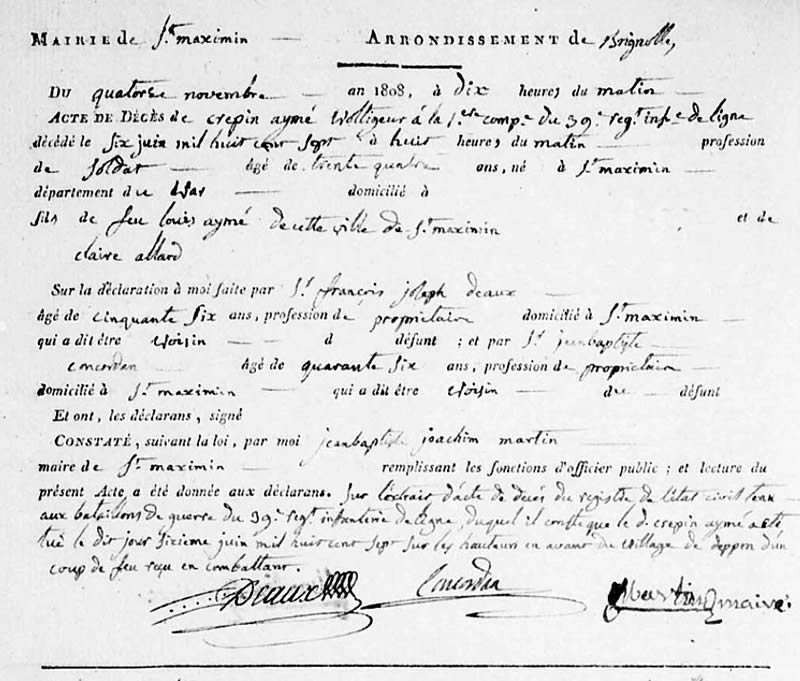 MAIRIE de St. maximin — ARRONDISSEMENT de Brignolle,
DU quatorse novembre — an 1808, à Dix heures du matin —
ACTE DE DÉCÈS de crepin aymé Voltigeur à la 1.ere comp.e du 39.e reg.t inf.e de ligne
décédé le Six juin mil huit cent sept à huit heures du matin — profession
de Soldat — âgé de trente quatre ans, né à St. maximin —
département du Var — domicilié à
fils de feu louis aymé de cette ville de St. maximin et de
claire allard
Sur la déclaration à moi faite par Sr. françois joseph Deaux —
âgé de cinquante Six ans, profession de propriétaire domicilié à St. maximin —
qui a dit être Voisin — d défunt ; et par Sr. jeanbaptiste
concordan — âgé de quarante Six ans, profession de propriétaire —
domicilié à St. maximin — qui a dit être Voisin — du — défunt
Et ont, les déclarans, signé
CONSTATÉ, suivant la loi, par moi jeanbaptiste joachim martin
maire de St. maximin — remplissant les fonctions d'officier public ; et lecture du
présent Acte, a été donnée aux déclarans. Sur l'extrait d'acte de decés du registre de l'etat civil tenu
aux bataillons de guerre du 39.e reg.t infanterie de ligne, duquel il conste que le d. crepin aymé a eté
tué le dit jour Sixieme juin mil huit cent sept sur les hauteurs en avant du village de deppen d'un
coup de feu reçu en combattant.
Deaux Concordan Martin maire.